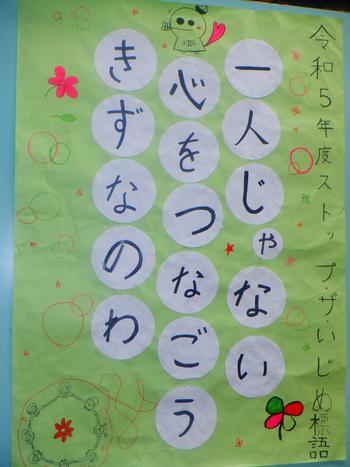 令和5年度ストップ・ザ・いじめ標語
一人じゃない
心をつなごう
きずなのわ